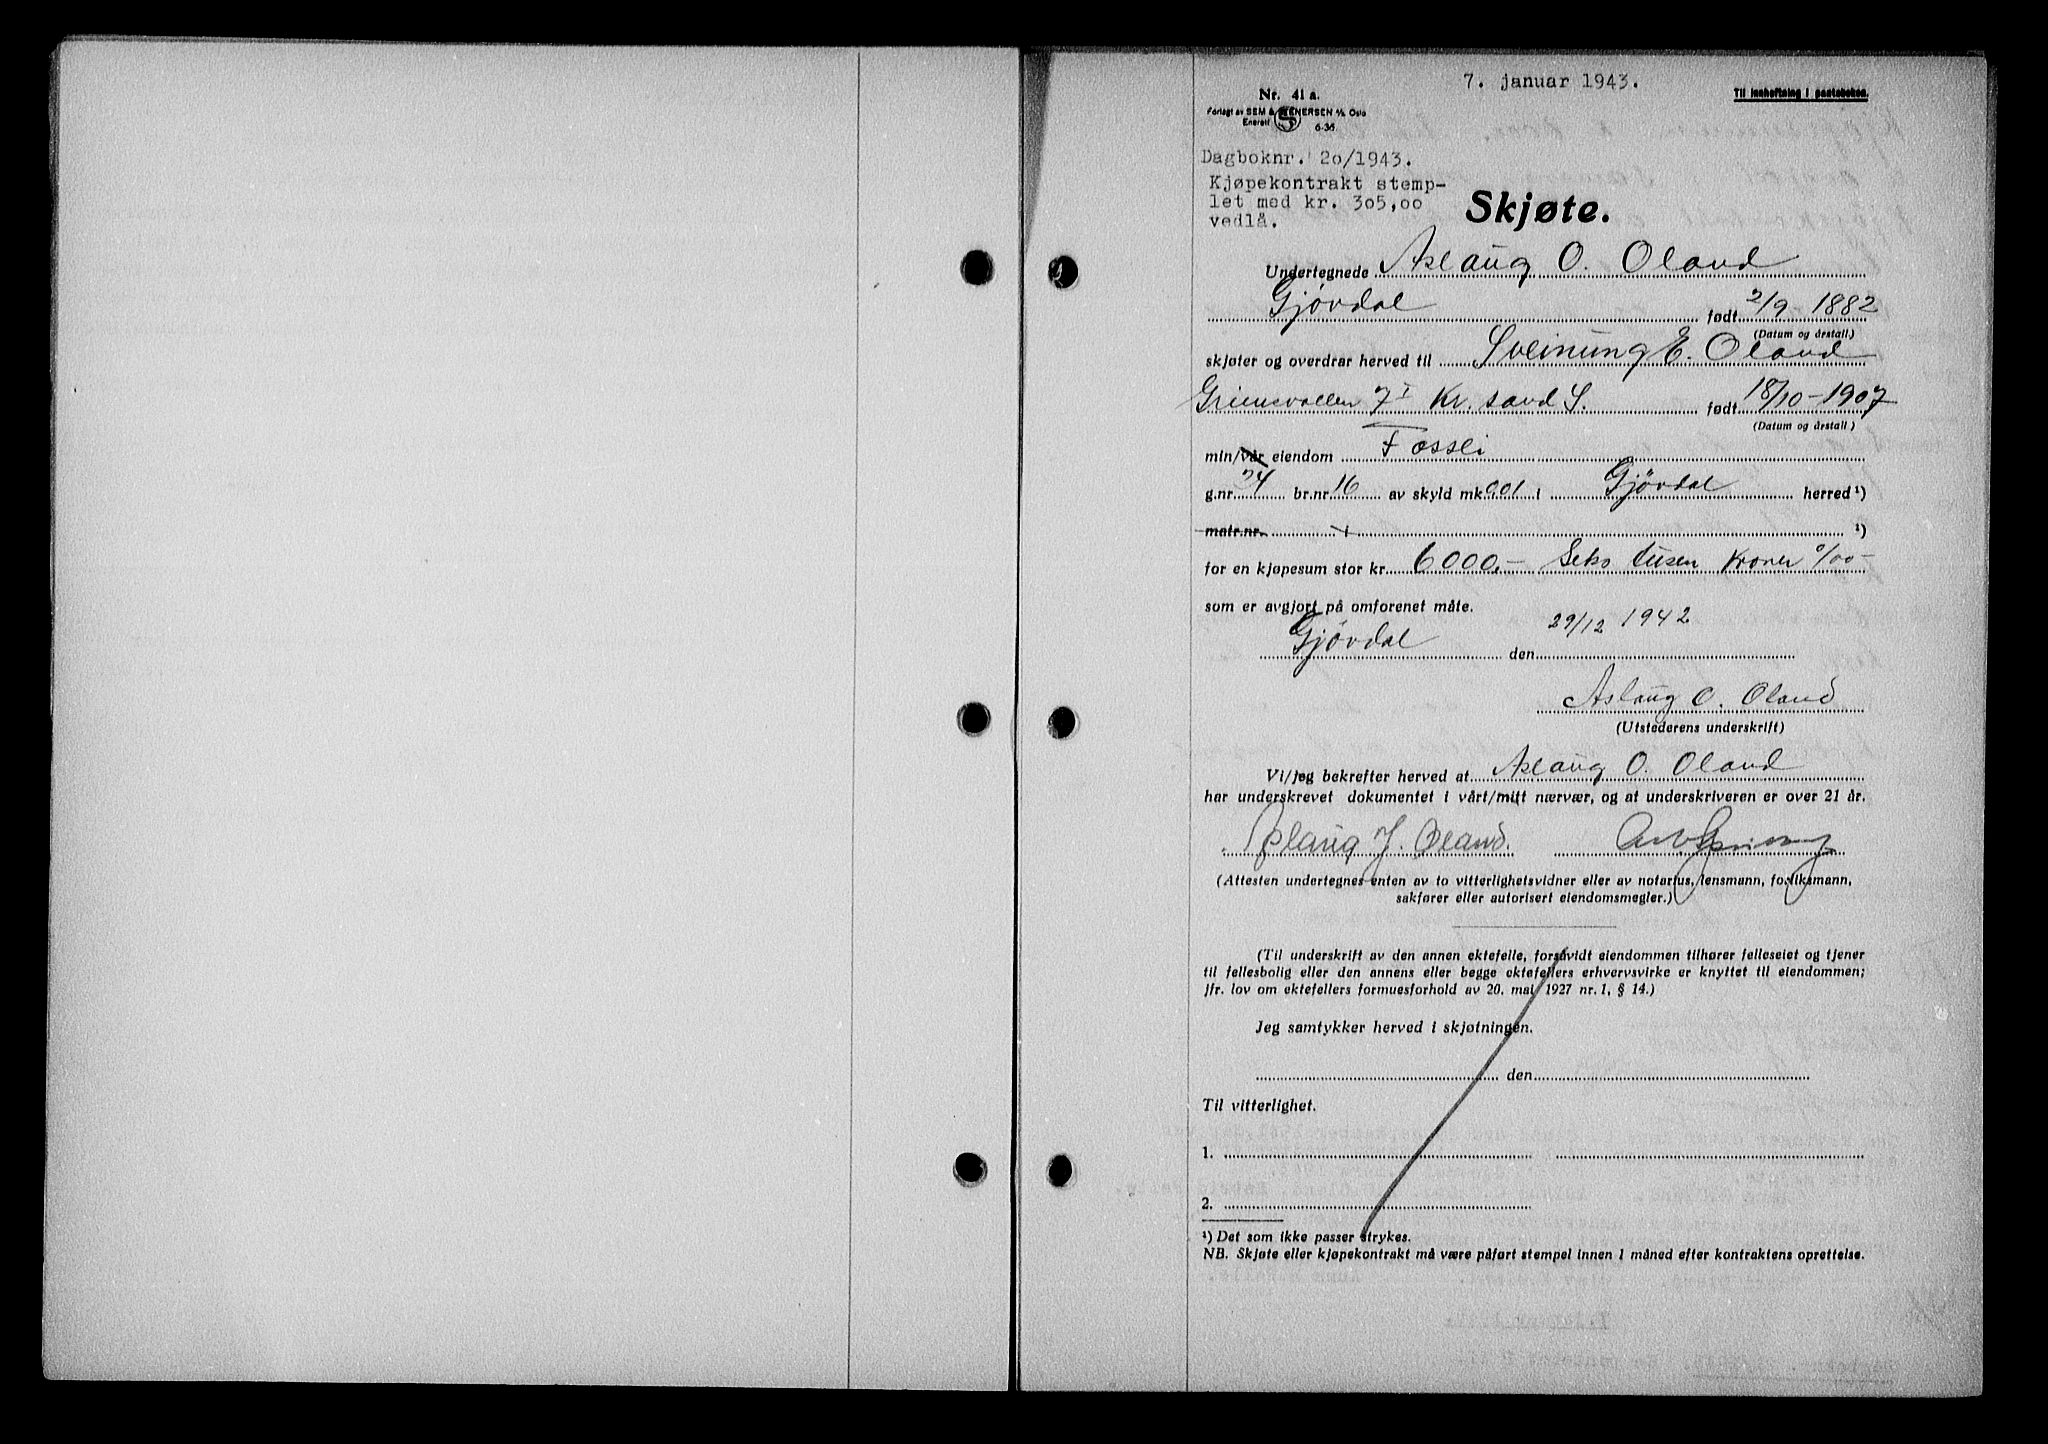 7. januar 1943.
Til innheftning i panteboken.
Nr. 41 a.
Forlagt av SEM & STENERSEN A/S Oslo
Enerett S 6-36
Dagboknr. 20/1943.
Kjøpekontrakt stemp-
let med kr. 305,00
vedlå.
Skjøte.
Undertegnede Aslaug O. Oland
Gjövdal født 2/9-1882
(Datum og årstall)
skjøter og overdrar herved til Sveinung E. Oland
Grimsvollen 7 I Kr. sand S. født 18/10-1907
(Datum og årstall)
min/vår eiendom Fossli
g.nr. 34 br.nr. 16 av skyld mk 0,01 i Gjövdal herred ¹)
matr.nr. ¹)
for en kjøpesum stor kr. 6000,- Seks tusen kroner 0/00-
som er avgjort på omforenet måte.
Gjövdal den 29/12 1942
Aslaug O. Oland
(Utstederens underskrift)
Vi/jeg bekrefter herved at Aslaug O. Oland
har underskrevet dokumentet i vårt/mitt nærvær, og at underskriveren er over 21 år.
Aslaug J. Oland.
(Attesten undertegnes enten av to vitterlighetsvidner eller av notarius, lensmann, forliksmann,
sakfører eller autorisert eiendomsmegler.)
(Til underskrift av den annen ektefelle, forsåvidt eiendommen tilhører felleseiet og tjener
til fellesbolig eller den annens eller begge ektefellers erhvervsvirke er knyttet til eiendommen;
jfr. lov om ektefellers formuesforhold av 20. mai 1927 nr. 1, § 14.)
Jeg samtykker herved i skjøtningen.
den
Til vitterlighet.
1.
2.
¹) Det som ikke passer strykes.
NB. Skjøte eller kjøpekontrakt må være påført stempel innen 1 måned efter kontraktens oprettelse.